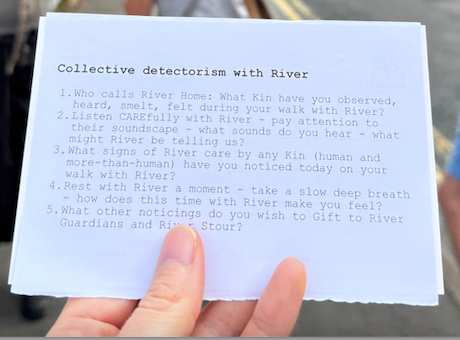 Collective detectorism with River
1. Who calls River Home: What Kin have you observed,
heard, smelt, felt during your walk with River?
2. Listen CAREfully with River - pay attention to
their soundscape - what sounds do you hear - what
might River be telling us?
3. What signs of River care by any Kin (human and
more-than-human) have you noticed today on your
walk with River?
4. Rest with River a moment - take a slow deep breath
- how does this time with River make you feel?
5. What other noticings do you wish to Gift to River
Guardians and River Stour?